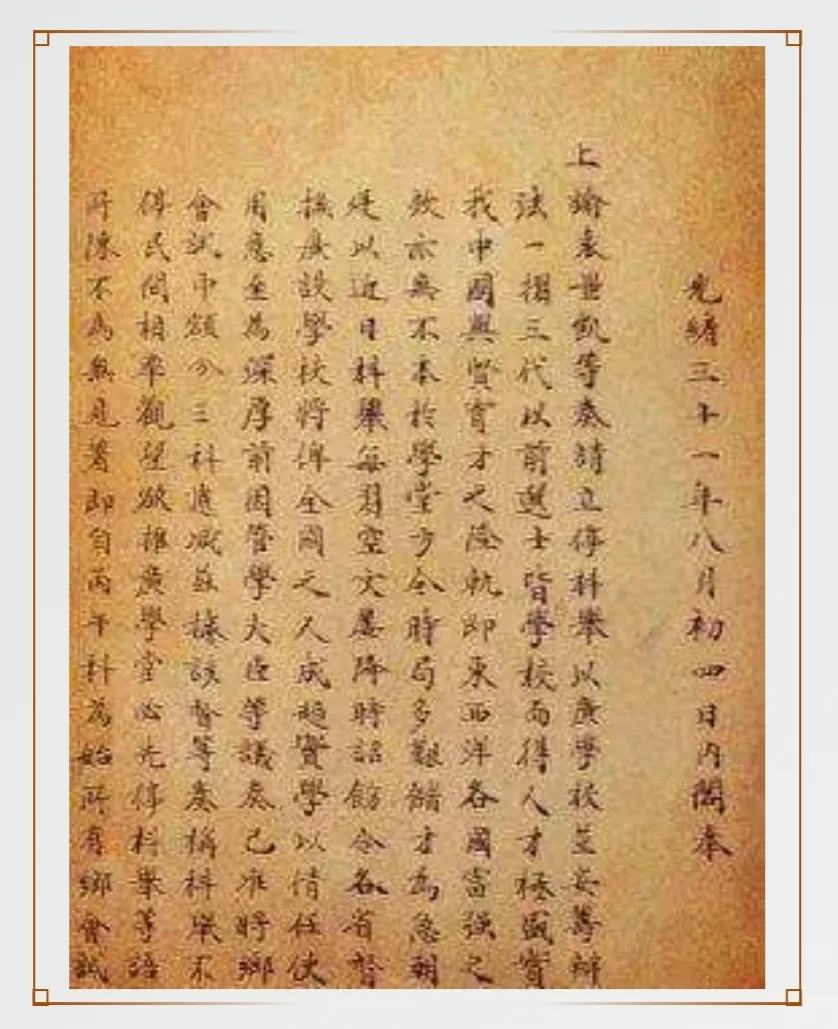 光緒三十一年八月初四日內閣奉
上諭袁世凱等奏請立停科舉以廣學校並妥籌辦
法一摺三代以前選士皆學校而得人才極盛實
我中國興賢育才之隆軌即東西洋各國富強之
效亦無不本於學堂方今時局多艱儲才為急朝
廷以近日科舉每習空文屢降時詔飭令各省督
撫廣設學校將俾全國之人咸趨實學以備任使
用意至為深厚前因管學大臣等議奏已准將鄉
會試中額分三科遞減茲據該督等奏稱科舉不
停民間相率觀望欲推廣學堂必先停科舉等語
所陳不為無見著即自丙午科為始所有鄉會試